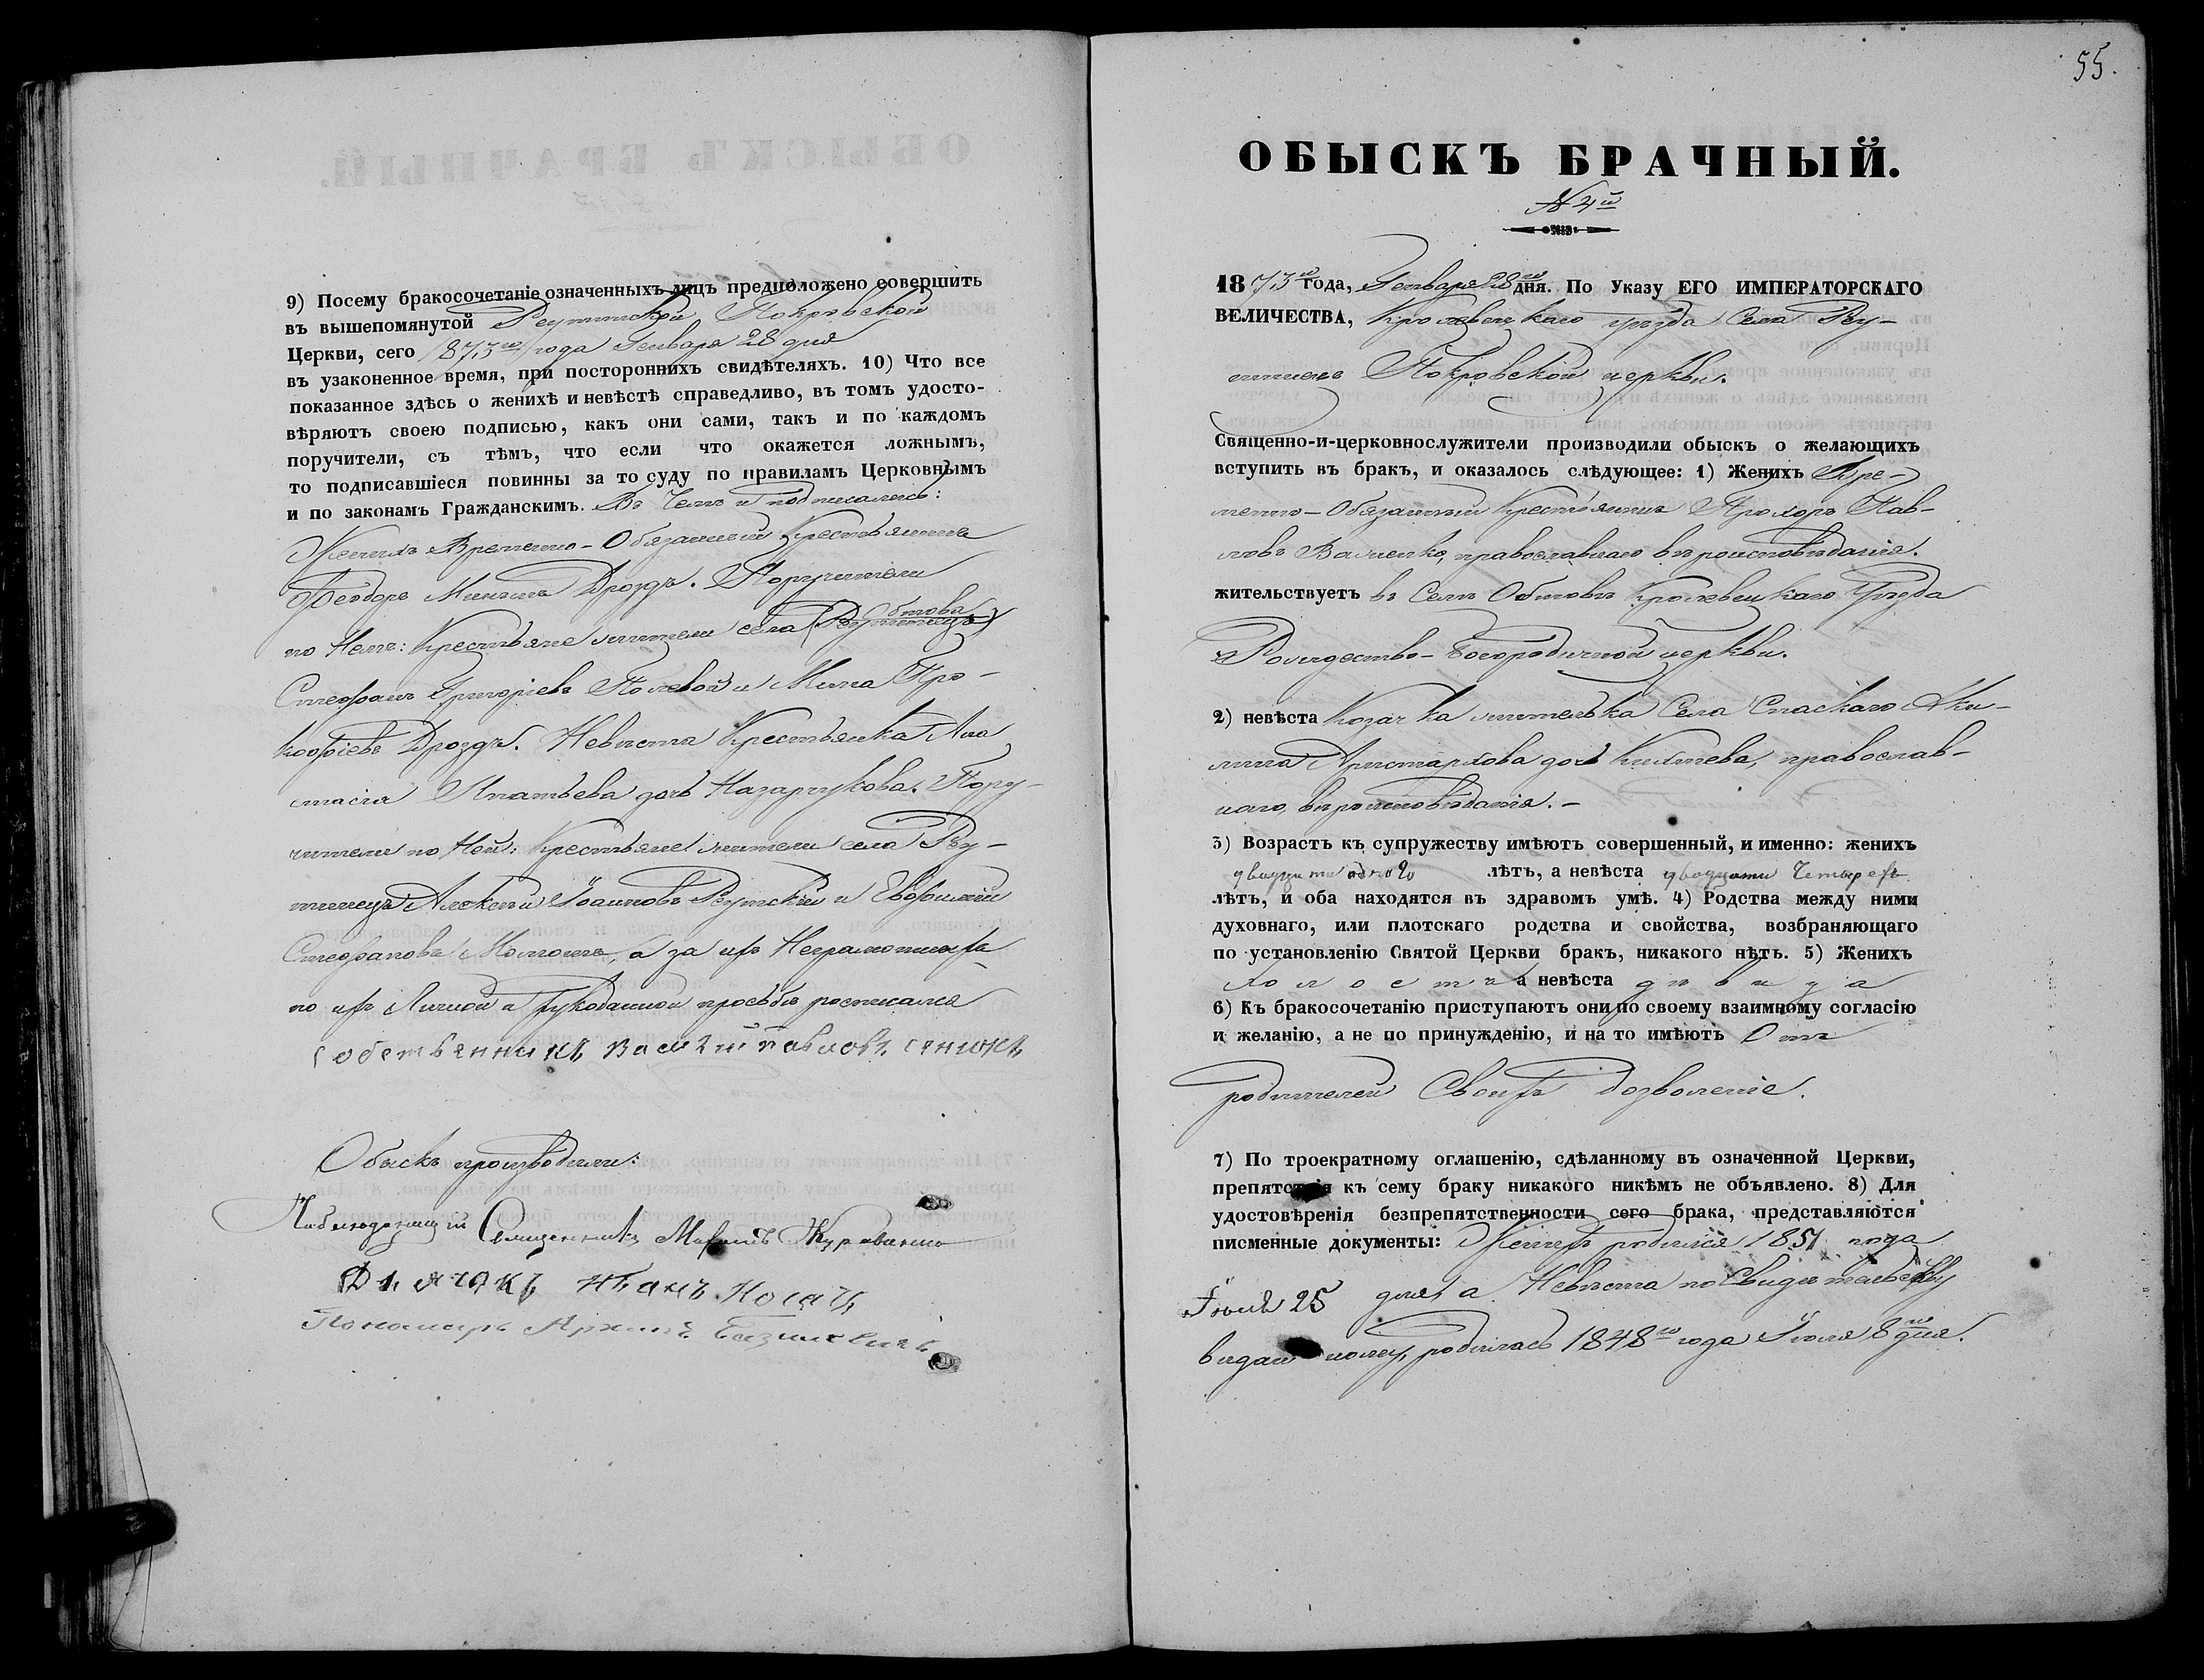 9) Посему бракосочетаніе означенныхъ лицъ предположено совершить
въ вышепомянутой Реутинской Покровской
Церкви, сего 1873го года Генваря 28 дня
въ узаконенное время, при постороннихъ свидѣтеляхъ. 10) Что все
показанное здѣсь о женихѣ и невѣстѣ справедливо, въ томъ удосто-
вѣряютъ своею подписью, какъ они сами, такъ и по каждомъ
поручители, съ тѣмъ, что если что окажется ложнымъ,
то подписавшіеся повинны за то суду по правиламъ Церковнымъ
и по законамъ Гражданскимъ. Въ чемъ и подписались:
Женихъ Временно-Обязанный Крестьянинъ
Ѳеодоръ Мининъ Дроздъ. Поручители
Обтова
по Немъ: Крестьяне жители села (Реутинецъ)
Стефанъ Григоріевъ Полевой и Мина Про-
кофіевъ Дроздъ. Невѣста Крестьянка Ана
стасія Игнатьева дочь Назарчукова. Пору-
чители по Ней: Крестьяне жители села Реу-
тинецъ Алексѣй Іоанновъ Реутскій и Евфимій
Стефановъ, а за ихъ Неграмотныхъ
по ихъ Личной и Рукоданной просьбѣ росписался
собственникъ Василій Павловъ Сенюкъ
Обыскъ производили:
Наблюдающій Священникъ Журавскій
Дьячокъ Иванъ Носачъ
Пономарь Архипъ Базилевичъ
55.
ОБЫСКЪ БРАЧНЫЙ.
№ 4й
1873го года, Генваря 28го дня. По Указу ЕГО ИМПЕРАТОРСКАГО
ВЕЛИЧЕСТВА, Кролевецкаго уѣзда Села Реу-
тинецъ Покровской церкви.
Священно-и-церковнослужители производили обыскъ о желающихъ
вступить въ бракъ, и оказалось слѣдующее: 1) Женихъ Вре-
менно-Обязанный Крестьянинъ Прохоръ Пав-
ловъ Васченко, православнаго вѣроисповѣданія.
жительствуетъ въ Селѣ Обтовѣ Кролевецкаго Уѣзда
Рождество-Богородичной церкви.
2) невѣста Козачка жителька Села Спаскаго Аки-
лина Аристархова дочь Кихтева, православ-
наго, вѣроисповѣданія.-
3) Возрастъ къ супружеству имѣютъ совершенный, и именно: женихъ
двадцати одного лѣтъ, а невѣста двадцати Четырехъ
лѣтъ, и оба находятся въ здравомъ умѣ. 4) Родства между ними
духовнаго, или плотскаго родства и свойства, возбраняющаго
по установленію Святой Церкви бракъ, никакого нѣтъ. 5) Женихъ
холостъ а невѣста дѣвица
6) Къ бракосочетанію приступаютъ они по своему взаимному согласію
и желанію, а не по принужденію, и на то имѣютъ Отъ
родителей Своихъ дозволеніе.
7) По троекратному оглашенію, сдѣланному въ означенной Церкви,
препятствія къ сему браку никакого никѣмъ не объявлено. 8) Для
удостовѣренія безпрепятственности сего брака, представляются
писменные документы: Женихъ родился 1851 года
Іюля 25 дня, а Невѣста по Свидѣтельству
выданному, родилась 1848го года Іюля 8го дня.